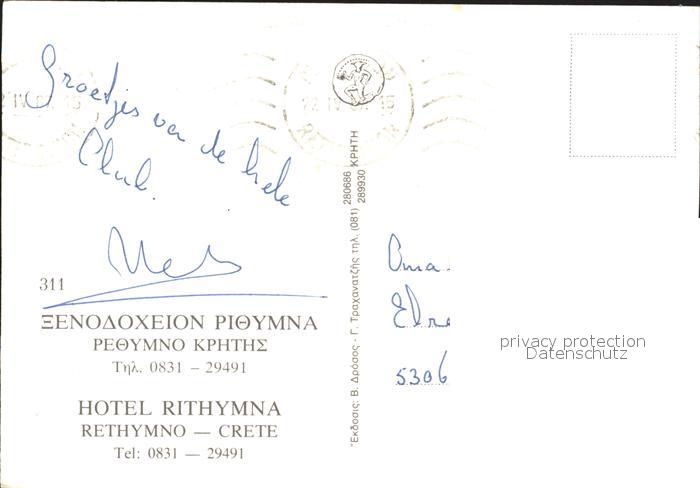 Groetjes van de hele
Club.
311
ΞΕΝΟΔΟΧΕΙΟΝ ΡΙΘΥΜΝΑ
ΡΕΘΥΜΝΟ ΚΡΗΤΗΣ
Τηλ. 0831 – 29491
HOTEL RITHYMNA
RETHYMNO — CRETE
Tel: 0831 — 29491
Ἔκδοσις: Β. Δρόσος - Γ. Τραχανατζῆς τηλ. (081) 280686 ΚΡΗΤΗ
289930
Oma
5306
privacy protection
Datenschutz